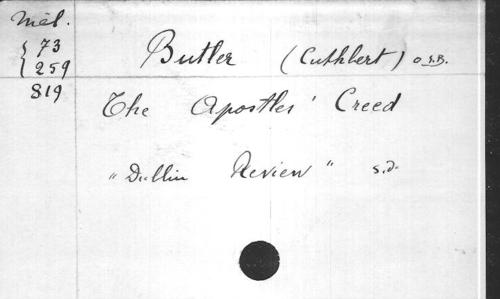 Mél.
{ 73
{ 259
819
Butler (Cuthbert) O.S.B.
The Apostles' Creed
"Dublin Review" s.d.